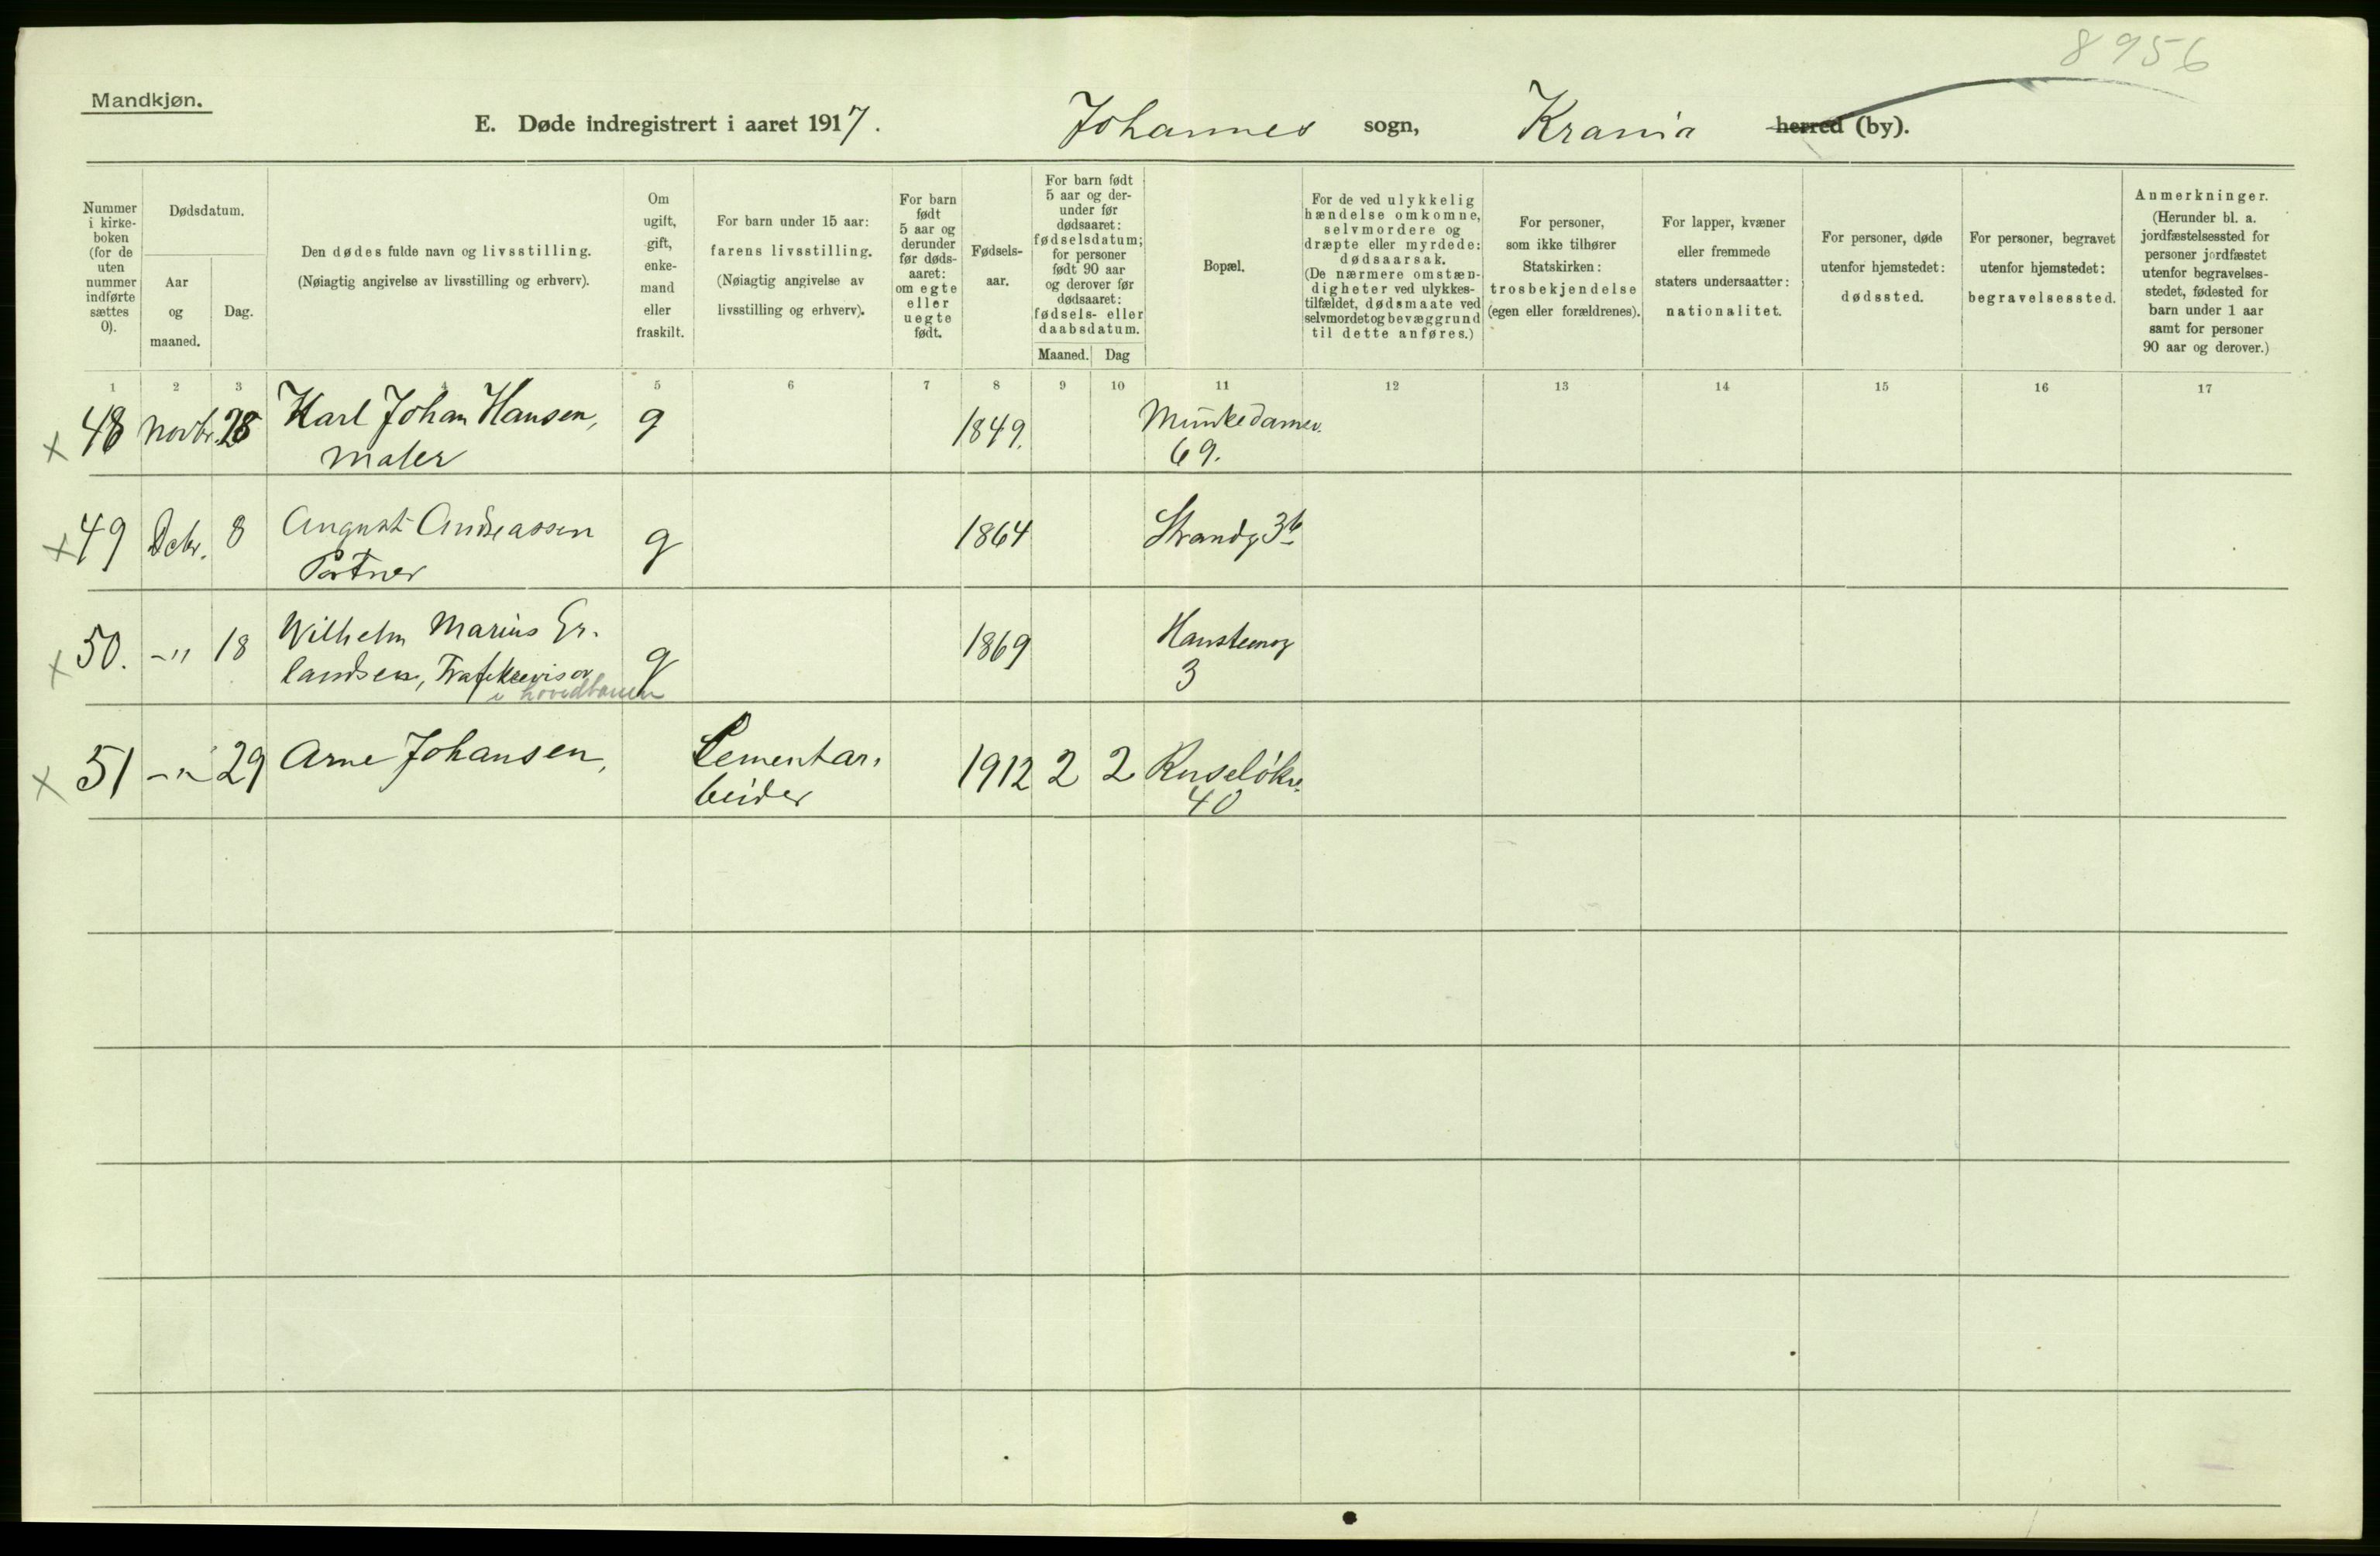 8956
Mandkjøn.
E. Døde indregistrert i aaret 1917. Johannes sogn, Krania herred (by).
Nummer i kirke-boken (for de uten nummer indførte sættes 0).
Dødsdatum.
Aar og maaned.
Dag.
Den dødes fulde navn og livsstilling.
(Nøiagtig angivelse av livsstilling og erhverv).
Om ugift, gift, enke-mand eller fraskilt.
For barn under 15 aar: farens livsstilling.
(Nøiagtig angivelse av livsstilling og erhverv).
For barn født 5 aar og derunder før døds-aaret: om egte eller uegte født.
Fødsels-aar.
For barn født 5 aar og der-under før dødsaaret: fødselsdatum; for personer født 90 aar og derover før dødsaaret: fødsels- eller daabsdatum.
Maaned. Dag
Bopæl.
For de ved ulykkelig hændelse omkomne, selvmordere og dræpte eller myrdede: dødsaarsak.
(De nærmere omstæn-digheter ved ulykkes-tilfældet, dødsmaate ved selvmordet og bevæggrund til dette anføres.)
For personer, som ikke tilhører Statskirken: trosbekjendelse (egen eller forældrenes).
For lapper, kvæner eller fremmede staters undersaatter: nationalitet.
For personer, døde utenfor hjemstedet: dødssted.
For personer, begravet utenfor hjemstedet: begravelsessted.
Anmerkninger.
(Herunder bl. a. jordfæstelsessted for personer jordfæstet utenfor begravelses-stedet, fødested for barn under 1 aar samt for personer 90 aar og derover.)
1 2 3 4 5 6 7 8 9 10 11 12 13 14 15 16 17
x 48 Novbr. 28 Karl Johan Hansen, g 1849. Munkedamsv.
Maler 69.
x 49 Dcbr. 8 August Andreassen g 1864 Strandg 3b
Portner
x 50. -" 18 Wilhelm Marius Er- g 1869 Hansteensg
landsen, Trafikrevisor 3
v hovedbanen
x 51 -" 29 Arne Johansen, Cementar- 1912 2 2 Ruseløkv.
beider 40